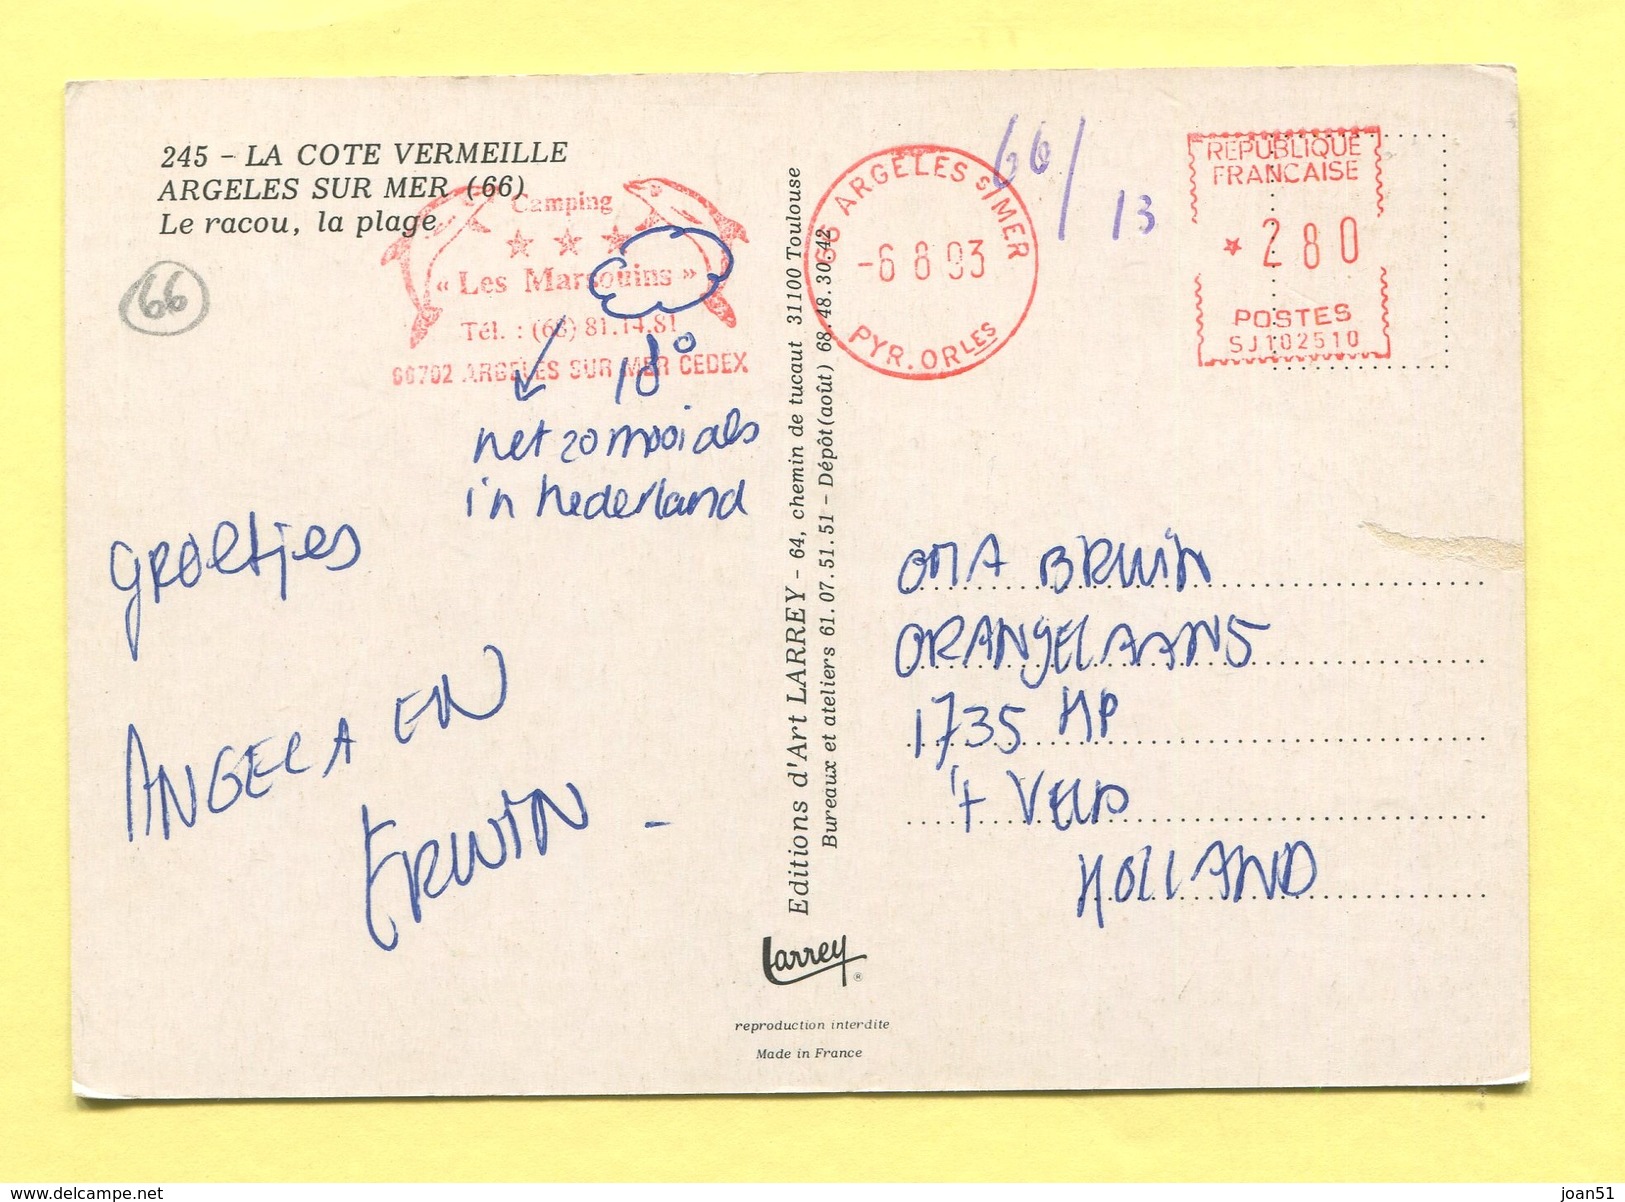 245 - LA COTE VERMEILLE
ARGELES SUR MER (66)
Le racou, la plage
66
Camping
« Les Marsouins »
Tél. : (68) 81.14.81
66702 ARGELES SUR MER CEDEX
18°
net zo mooi als
in nederland
groetjes
ANGELA EN
ERWIN -
Editions d'Art LARREY - 64, chemin de tucaut 31100 Toulouse
Bureaux et ateliers 61.07.51.51 - Dépôt(août) 68.48.30.42
Larrey
®
reproduction interdite
Made in France
66 ARGELES S/MER
-6 8 93
PYR. ORLES
66/
13
REPUBLIQUE
FRANCAISE
* 280
POSTES
SJ102510
OMA BRUIN
ORANJELAAN 5
1735 HP
't VELD
HOLLAND
joan51